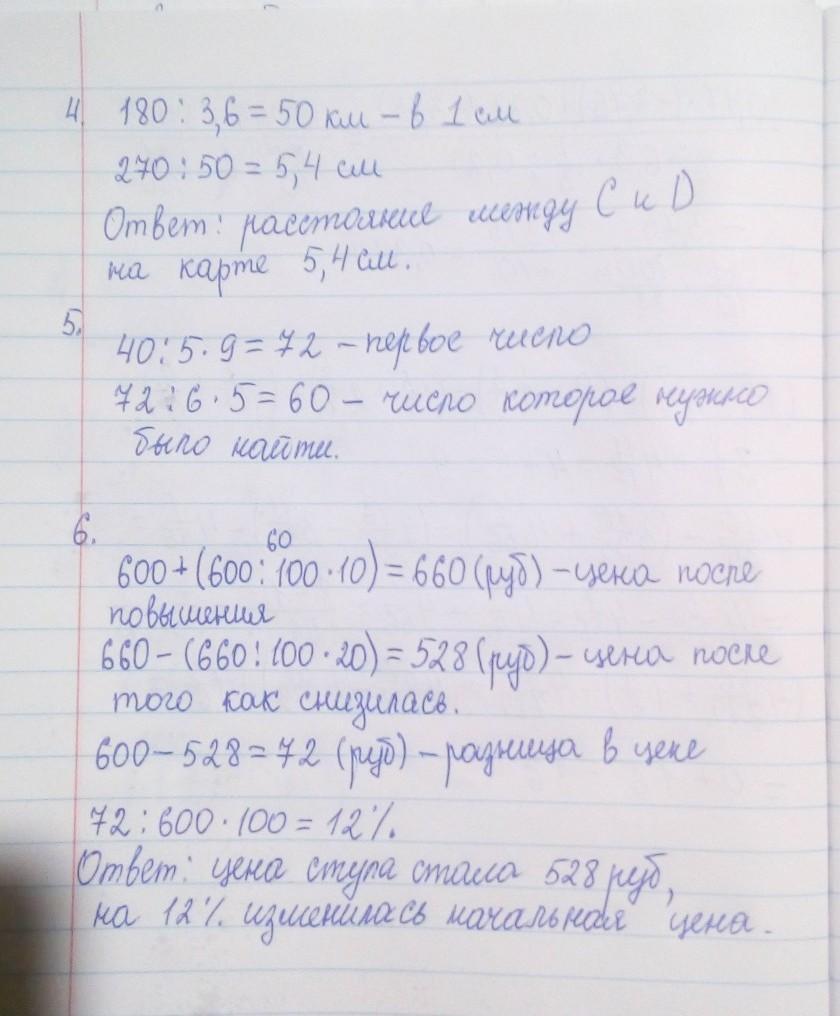 4. 180 : 3,6 = 50 км – в 1 см
270 : 50 = 5,4 см
Ответ: расстояние между C и D
на карте 5,4 см.
5.
40 : 5 · 9 = 72 – первое число
72 : 6 · 5 = 60 – число которое нужно
было найти.
6.
60
600 + (600 : 100 · 10) = 660 (руб) – цена после
повышения
660 – (660 : 100 · 20) = 528 (руб) – цена после
того как снизилась.
600 – 528 = 72 (руб) – разница в цене
72 : 600 · 100 = 12%.
Ответ: цена стула стала 528 руб,
на 12% изменилась начальная цена.